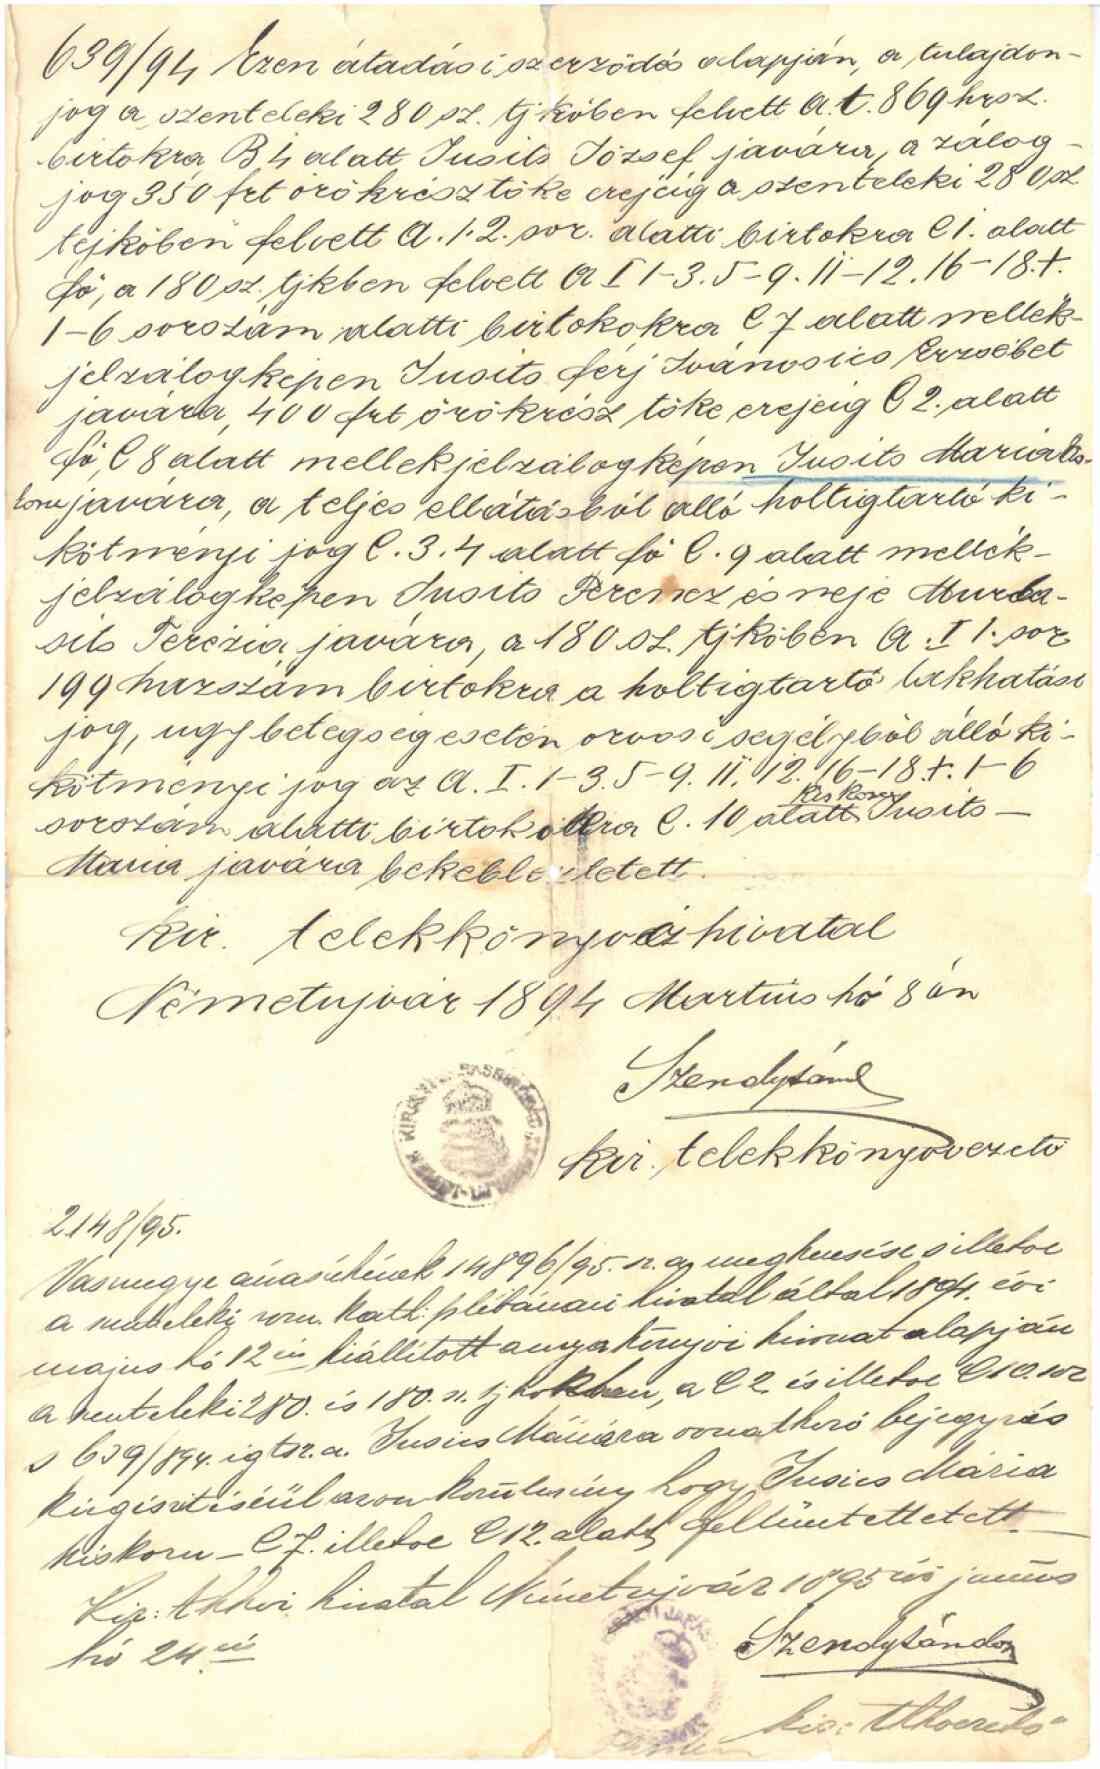 639/94 Ezen átadási szerződés alapján, a tulajdon-
jog a szenteleki 280 sz. tjköben felvett A.t. 869 hrsz.
birtokra B 4 alatt Jusits József javára, a zálog-
jog 350 frt örökrész tőke erejeig a szenteleki 280 sz
tejköben felvett A. 1. 2. sor. alatti birtokra C 1. alatt
fő, a 180 sz. tjkben felvett A I 1-3. 5-9. 11-12. 16-18. t.
1-6 sorszám alatti birtokokra C 7 alatt mellék-
jelzálogképen Jusits férj Ivánosics Erzsébet
javára, 400 frt örökrész tőke erejeig C 2. alatt
fő, C 8 alatt mellekjelzálogképen Jusits Mária kis-
koru javára, a teljes ellátásból álló holtigtartó ki-
kötményi jog C. 3. 4 alatt fő C. 9 alatt mellék-
jelzálogképen Jusits Ferencz és neje Murla-
sits Terézia javára, a 180 sz. tjköben A. I 1. sor
199 hazszám birtokra a holtigtartó lakhatási
jog, ugy betegség esetén orvosi segélyből álló ki-
kötményi jog az A. I. 1-3. 5-9. 11. 12. 16-18 t. 1-6
kiskoru
sorszám alatti birtokokra C. 10 alatt Jusits-
Maria javára bekebleztetett.
kir. telekkönyvi hivatal
Németujvár 1894 Martius hó 8 án
Szendy Sánd
kir. telekkönyvvezető
2148/95.
Vasmegye árvaszékének 14896/95. sz. a. megkeresése s illetve
a szenteleki rom. kath. plébániai hivatal által 1894. évi
majus hó 12 én kiállitott anyakönyvi kivonat alapján
a szenteleki 280. és 180. sz. tjkvkben, a C 2 és illetve C 10. sor
s 639/894. igtsz. a. Jusics Máriára vonatkozó bejegyzés
kiegészitéséül azon körülmény hogy Jusics Mária
kiskoru - C 7. illetve C 12. alatt feltüntettetett.
Kir: tkkvi hivatal Németujvár 1895 évi junius
hó 24 én
Szendy Sándor
kir: tkkvezető